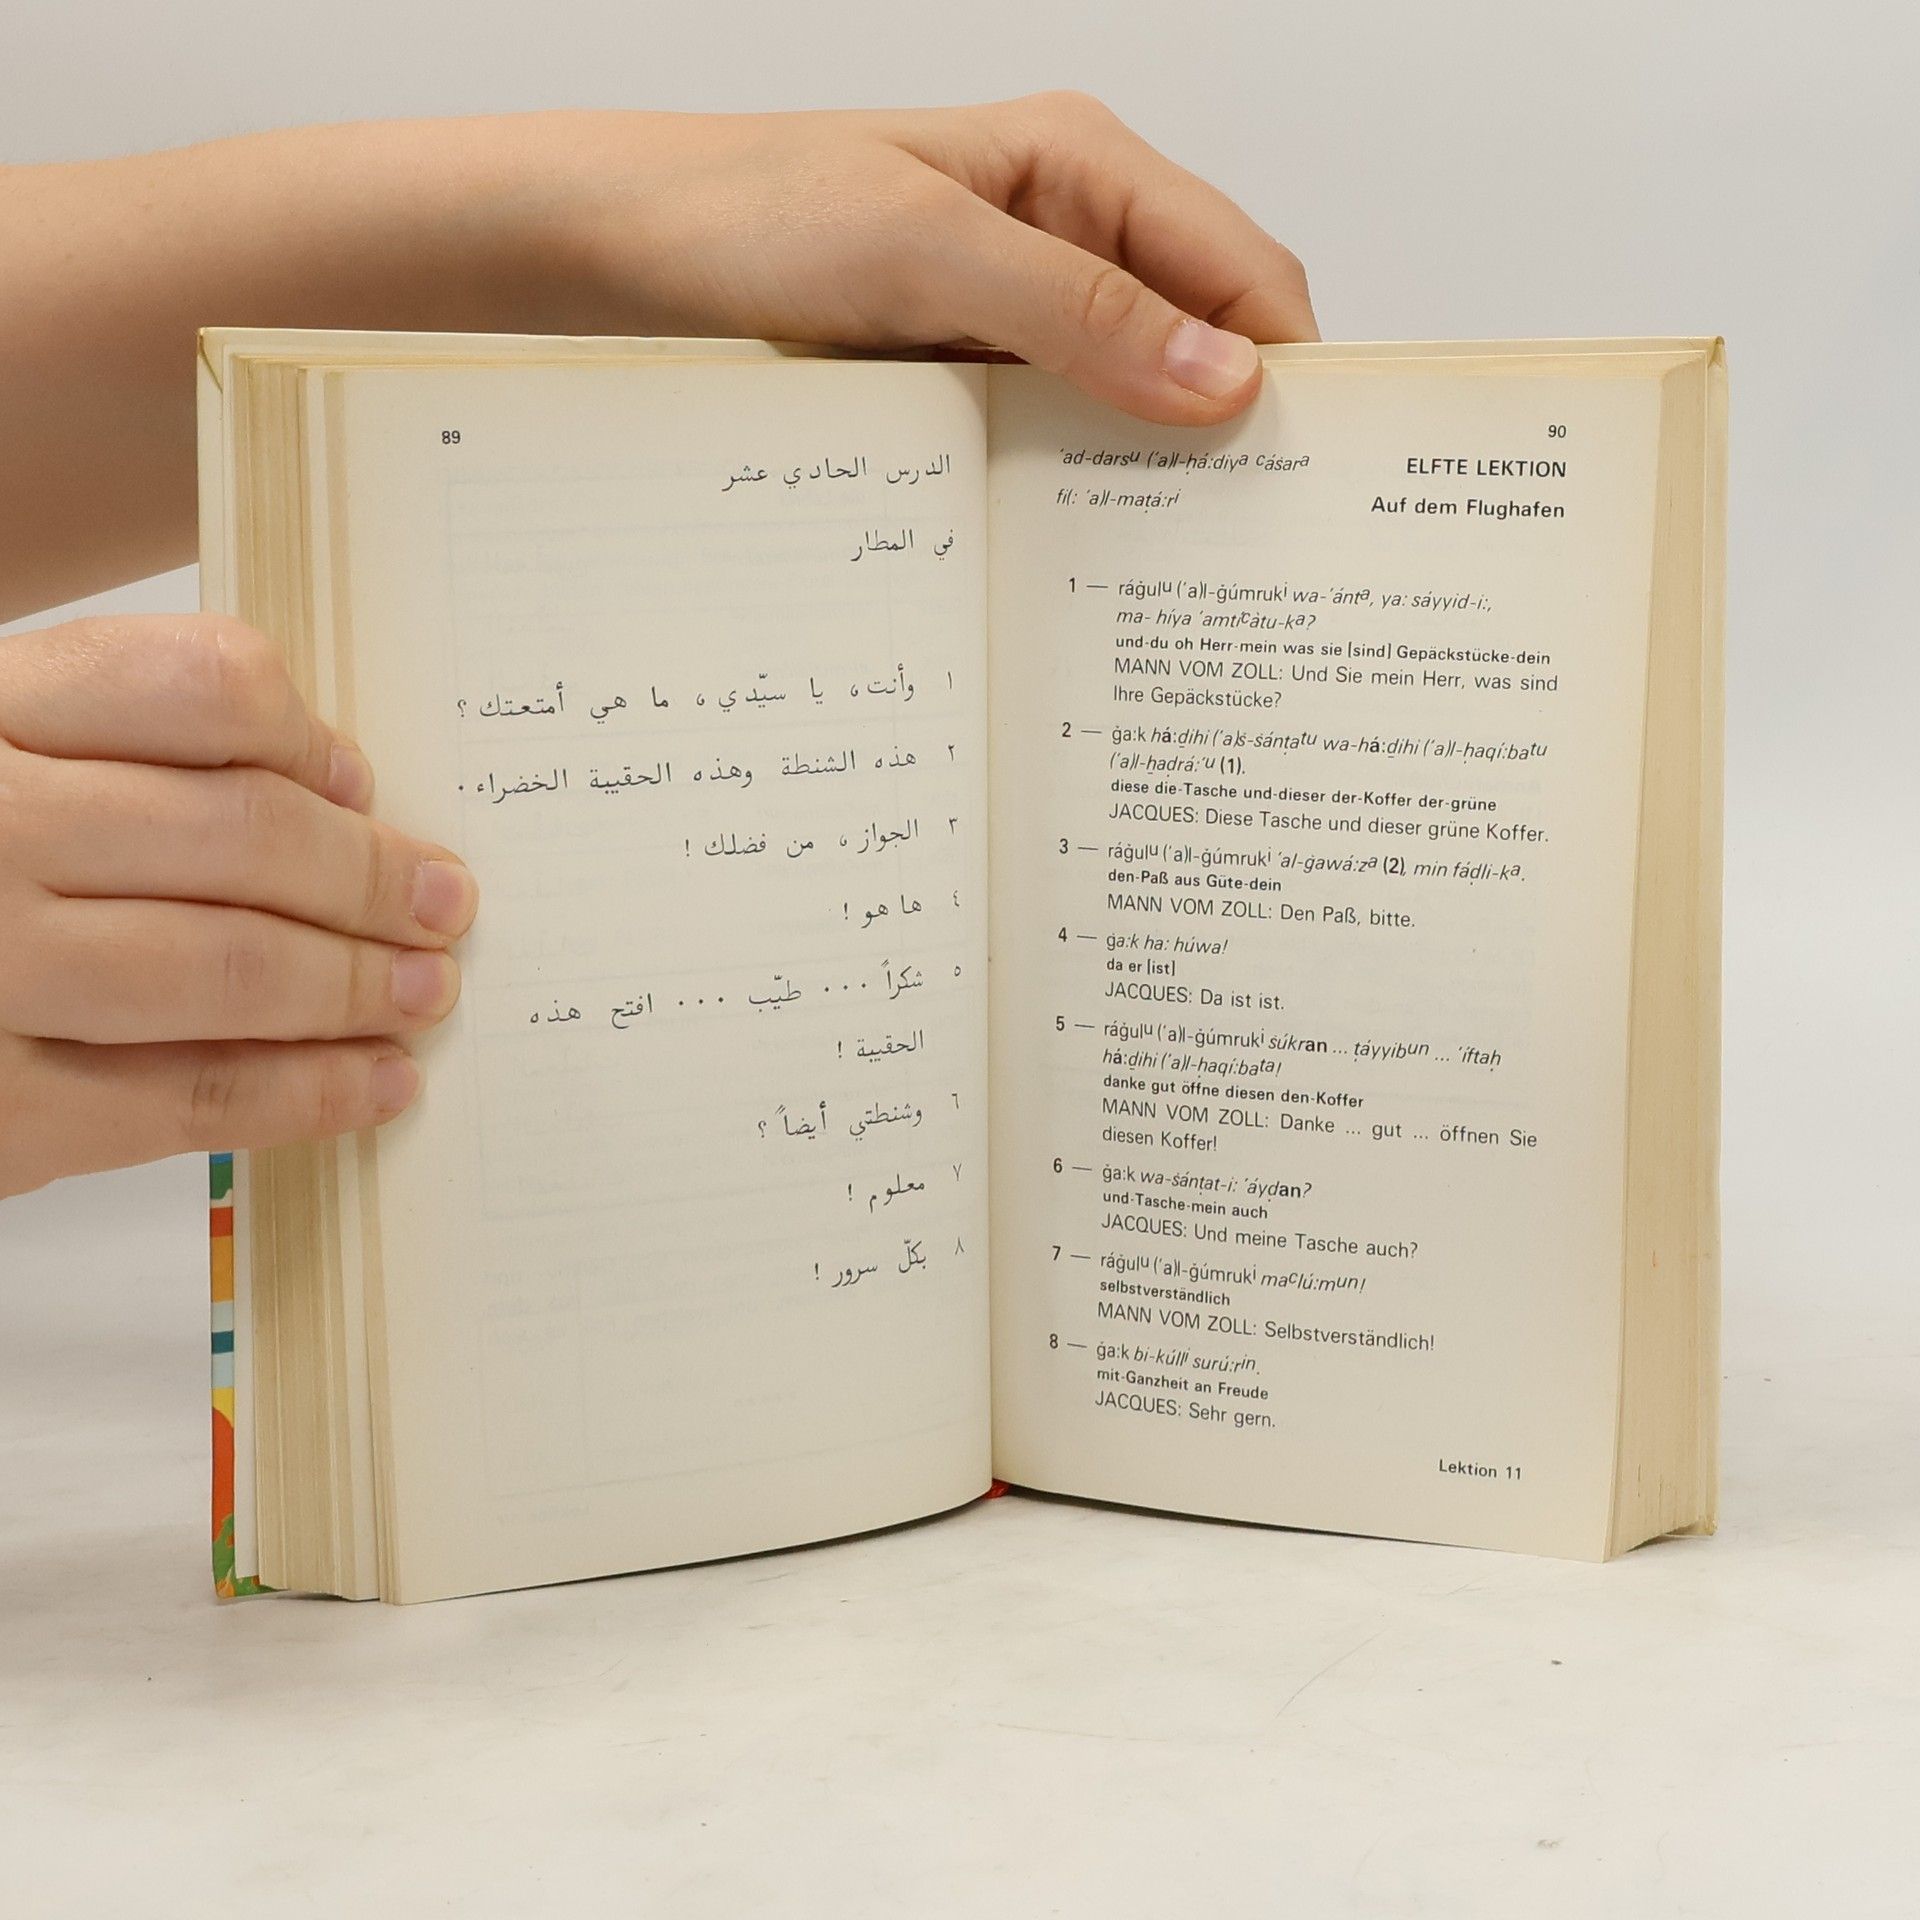 89
الدرس الحادي عشر
في المطار
١ وأنت، يا سيّدي، ما هي أمتعتك؟
٢ هذه الشنطة وهذه الحقيبة الخضراء.
٣ الجواز، من فضلك!
٤ ها هو!
٥ شكراً ... طيّب ... افتح هذه
الحقيبة!
٦ وشنطتي أيضاً؟
٧ معلوم!
٨ بكلّ سرور!
90
'ad-darsu ('a)l-ḥá:diya cášara ELFTE LEKTION
fi(: 'a)l-maṭá:ri Auf dem Flughafen
1 — ráġulu ('a)l-ġúmruki wa-'ánta, ya: sáyyid-i:,
ma- híya 'amticàtu-ka?
und-du oh Herr-mein was sie [sind] Gepäckstücke-dein
MANN VOM ZOLL: Und Sie mein Herr, was sind
Ihre Gepäckstücke?
2 — ġa:k há:ḏihi ('a)š-šánṭatu wa-há:ḏihi ('a)l-ḥaqí:batu
('a)l-ḫaḍrá:'u (1).
diese die-Tasche und-dieser der-Koffer der-grüne
JACQUES: Diese Tasche und dieser grüne Koffer.
3 — ráġulu ('a)l-ġúmruki 'al-ġawá:za (2), min fáḍli-ka.
den-Paß aus Güte-dein
MANN VOM ZOLL: Den Paß, bitte.
4 — ġa:k ha: húwa!
da er [ist]
JACQUES: Da ist ist.
5 — ráġulu ('a)l-ġúmruki šúkran ... ṭáyyibun ... 'íftaḥ
há:ḏihi ('a)l-ḥaqí:bata!
danke gut öffne diesen den-Koffer
MANN VOM ZOLL: Danke ... gut ... öffnen Sie
diesen Koffer!
6 — ġa:k wa-šánṭat-i: 'áyḍan?
und-Tasche-mein auch
JACQUES: Und meine Tasche auch?
7 — ráġulu ('a)l-ġúmruki maclú:mun!
selbstverständlich
MANN VOM ZOLL: Selbstverständlich!
8 — ġa:k bi-kúlli surú:rin.
mit-Ganzheit an Freude
JACQUES: Sehr gern.
Lektion 11